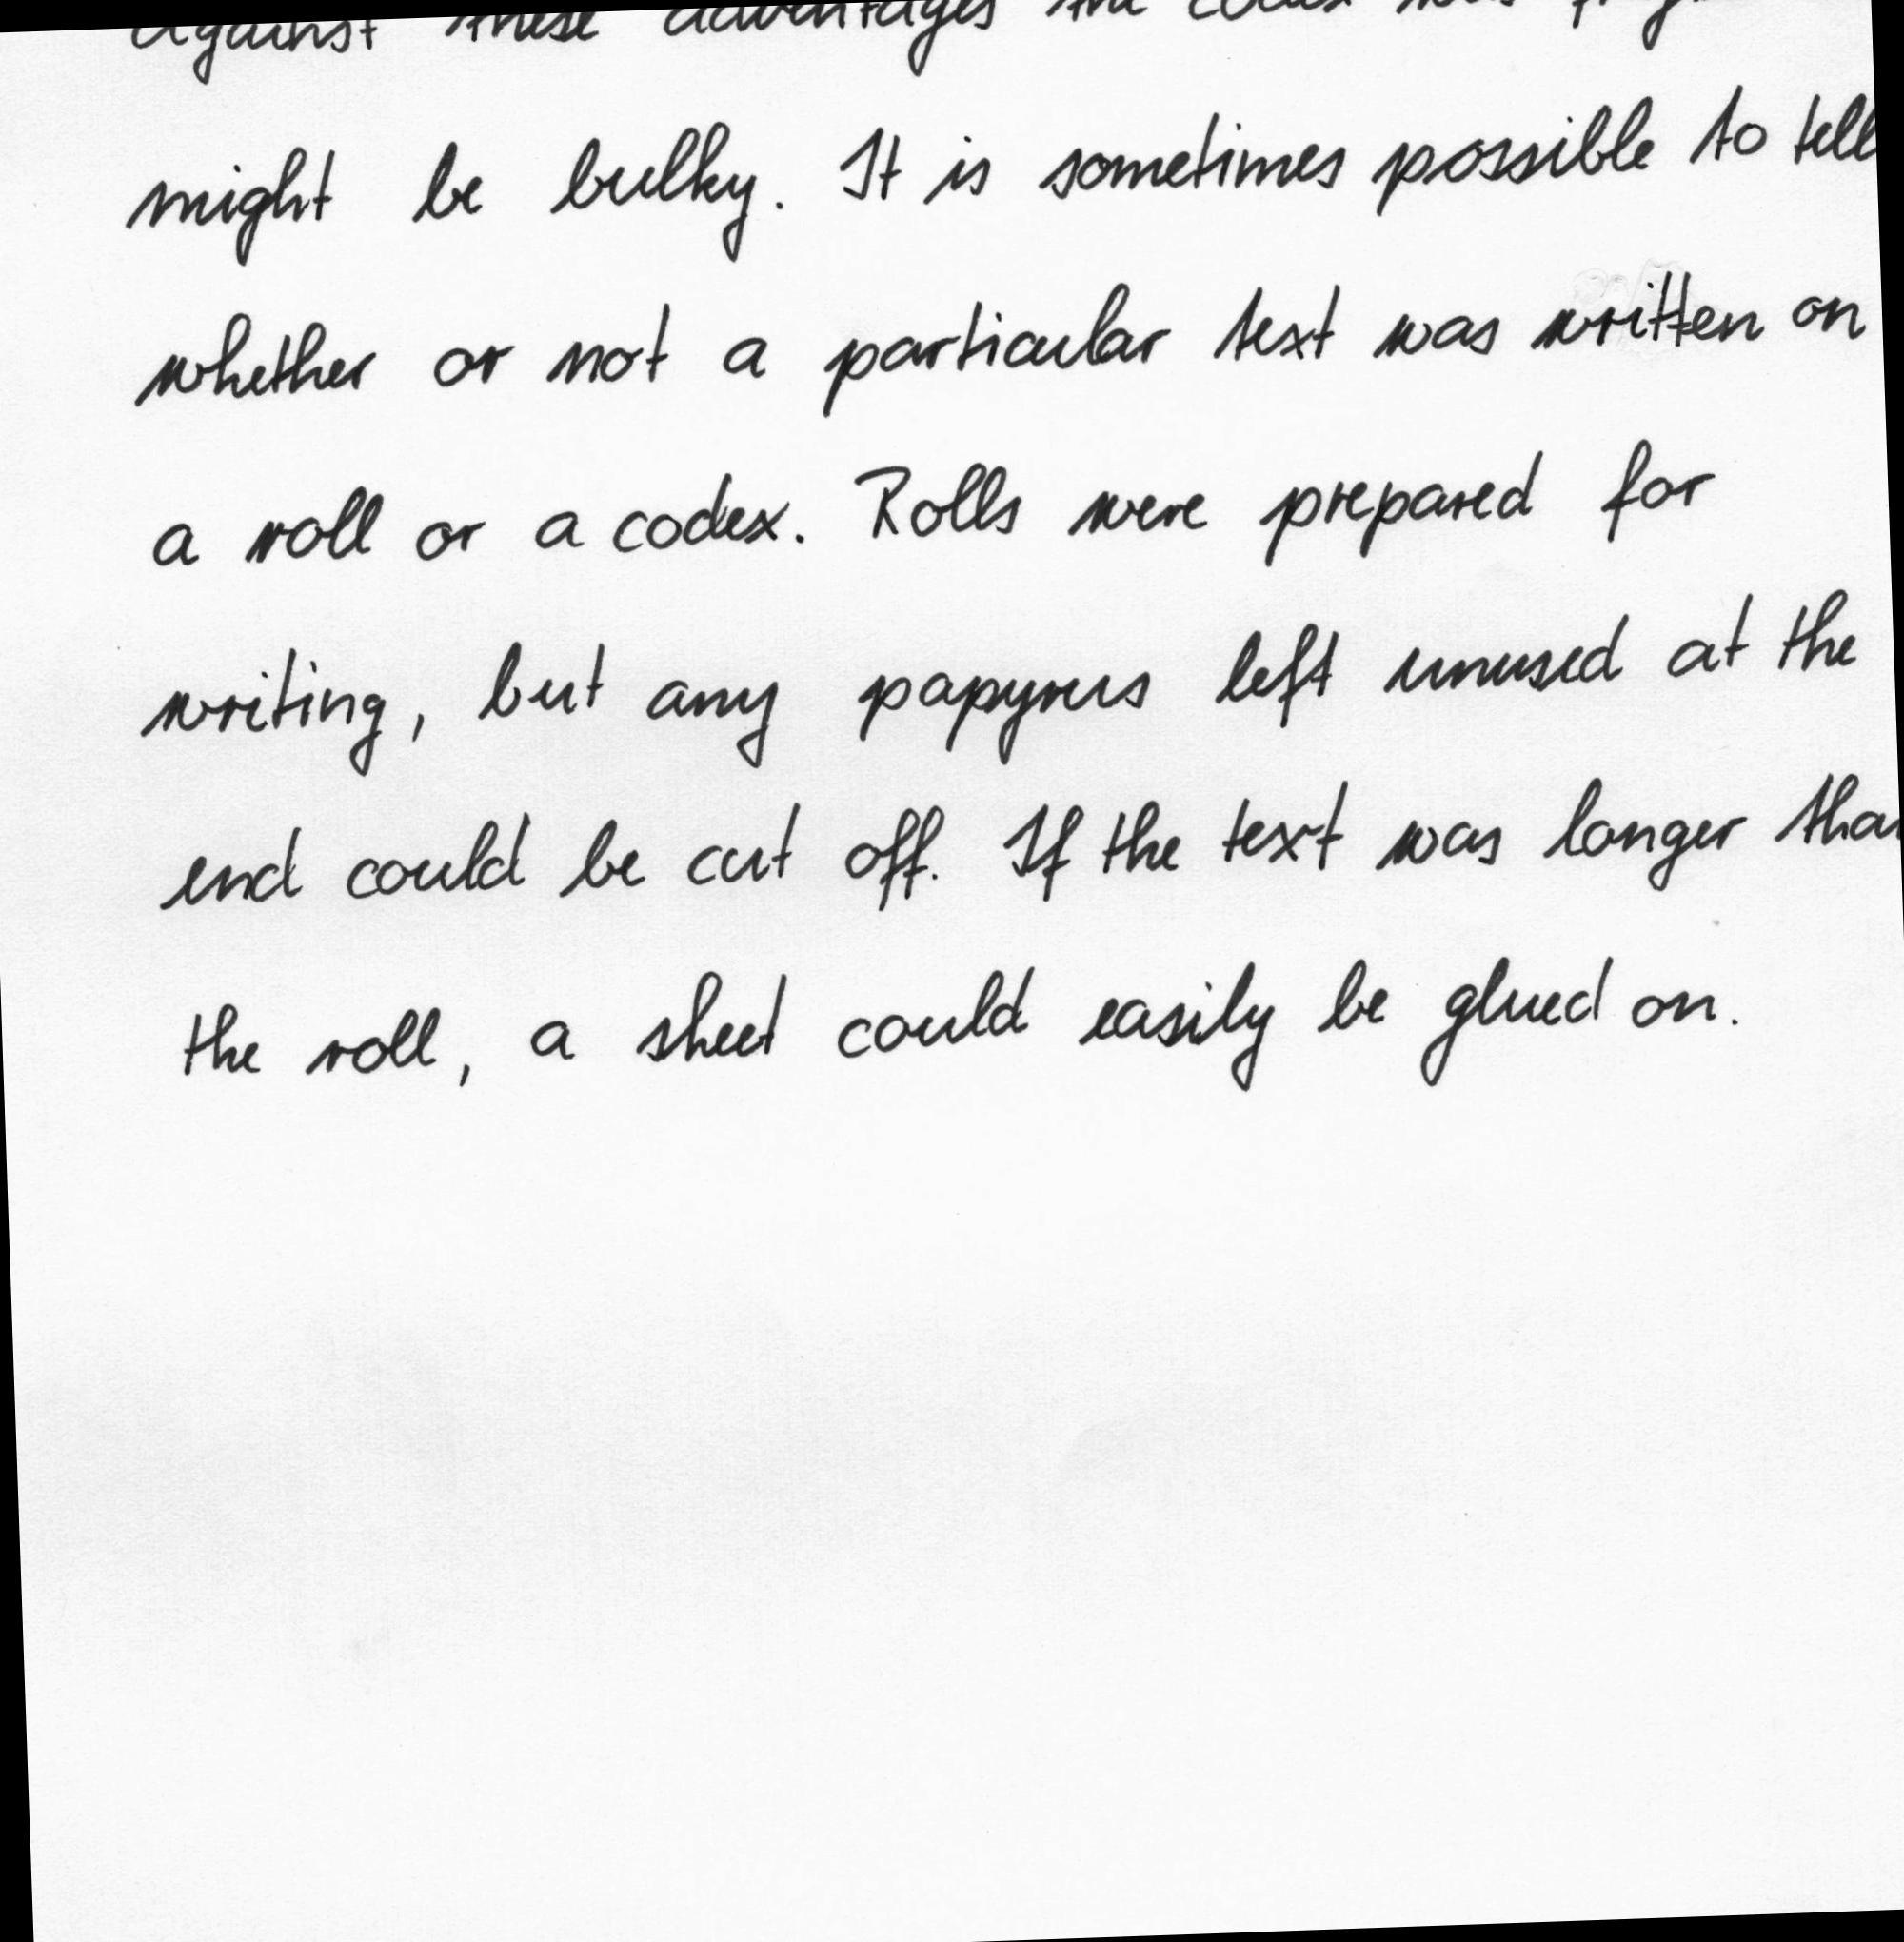 against these advantages the codex was
might be bulky. It is sometimes possible to tell
whether or not a particular text was written on
a roll or a codex. Rolls were prepared for
writing, but any papyrus left unused at the
end could be cut off. If the text was longer than
the roll, a sheet could easily be glued on.